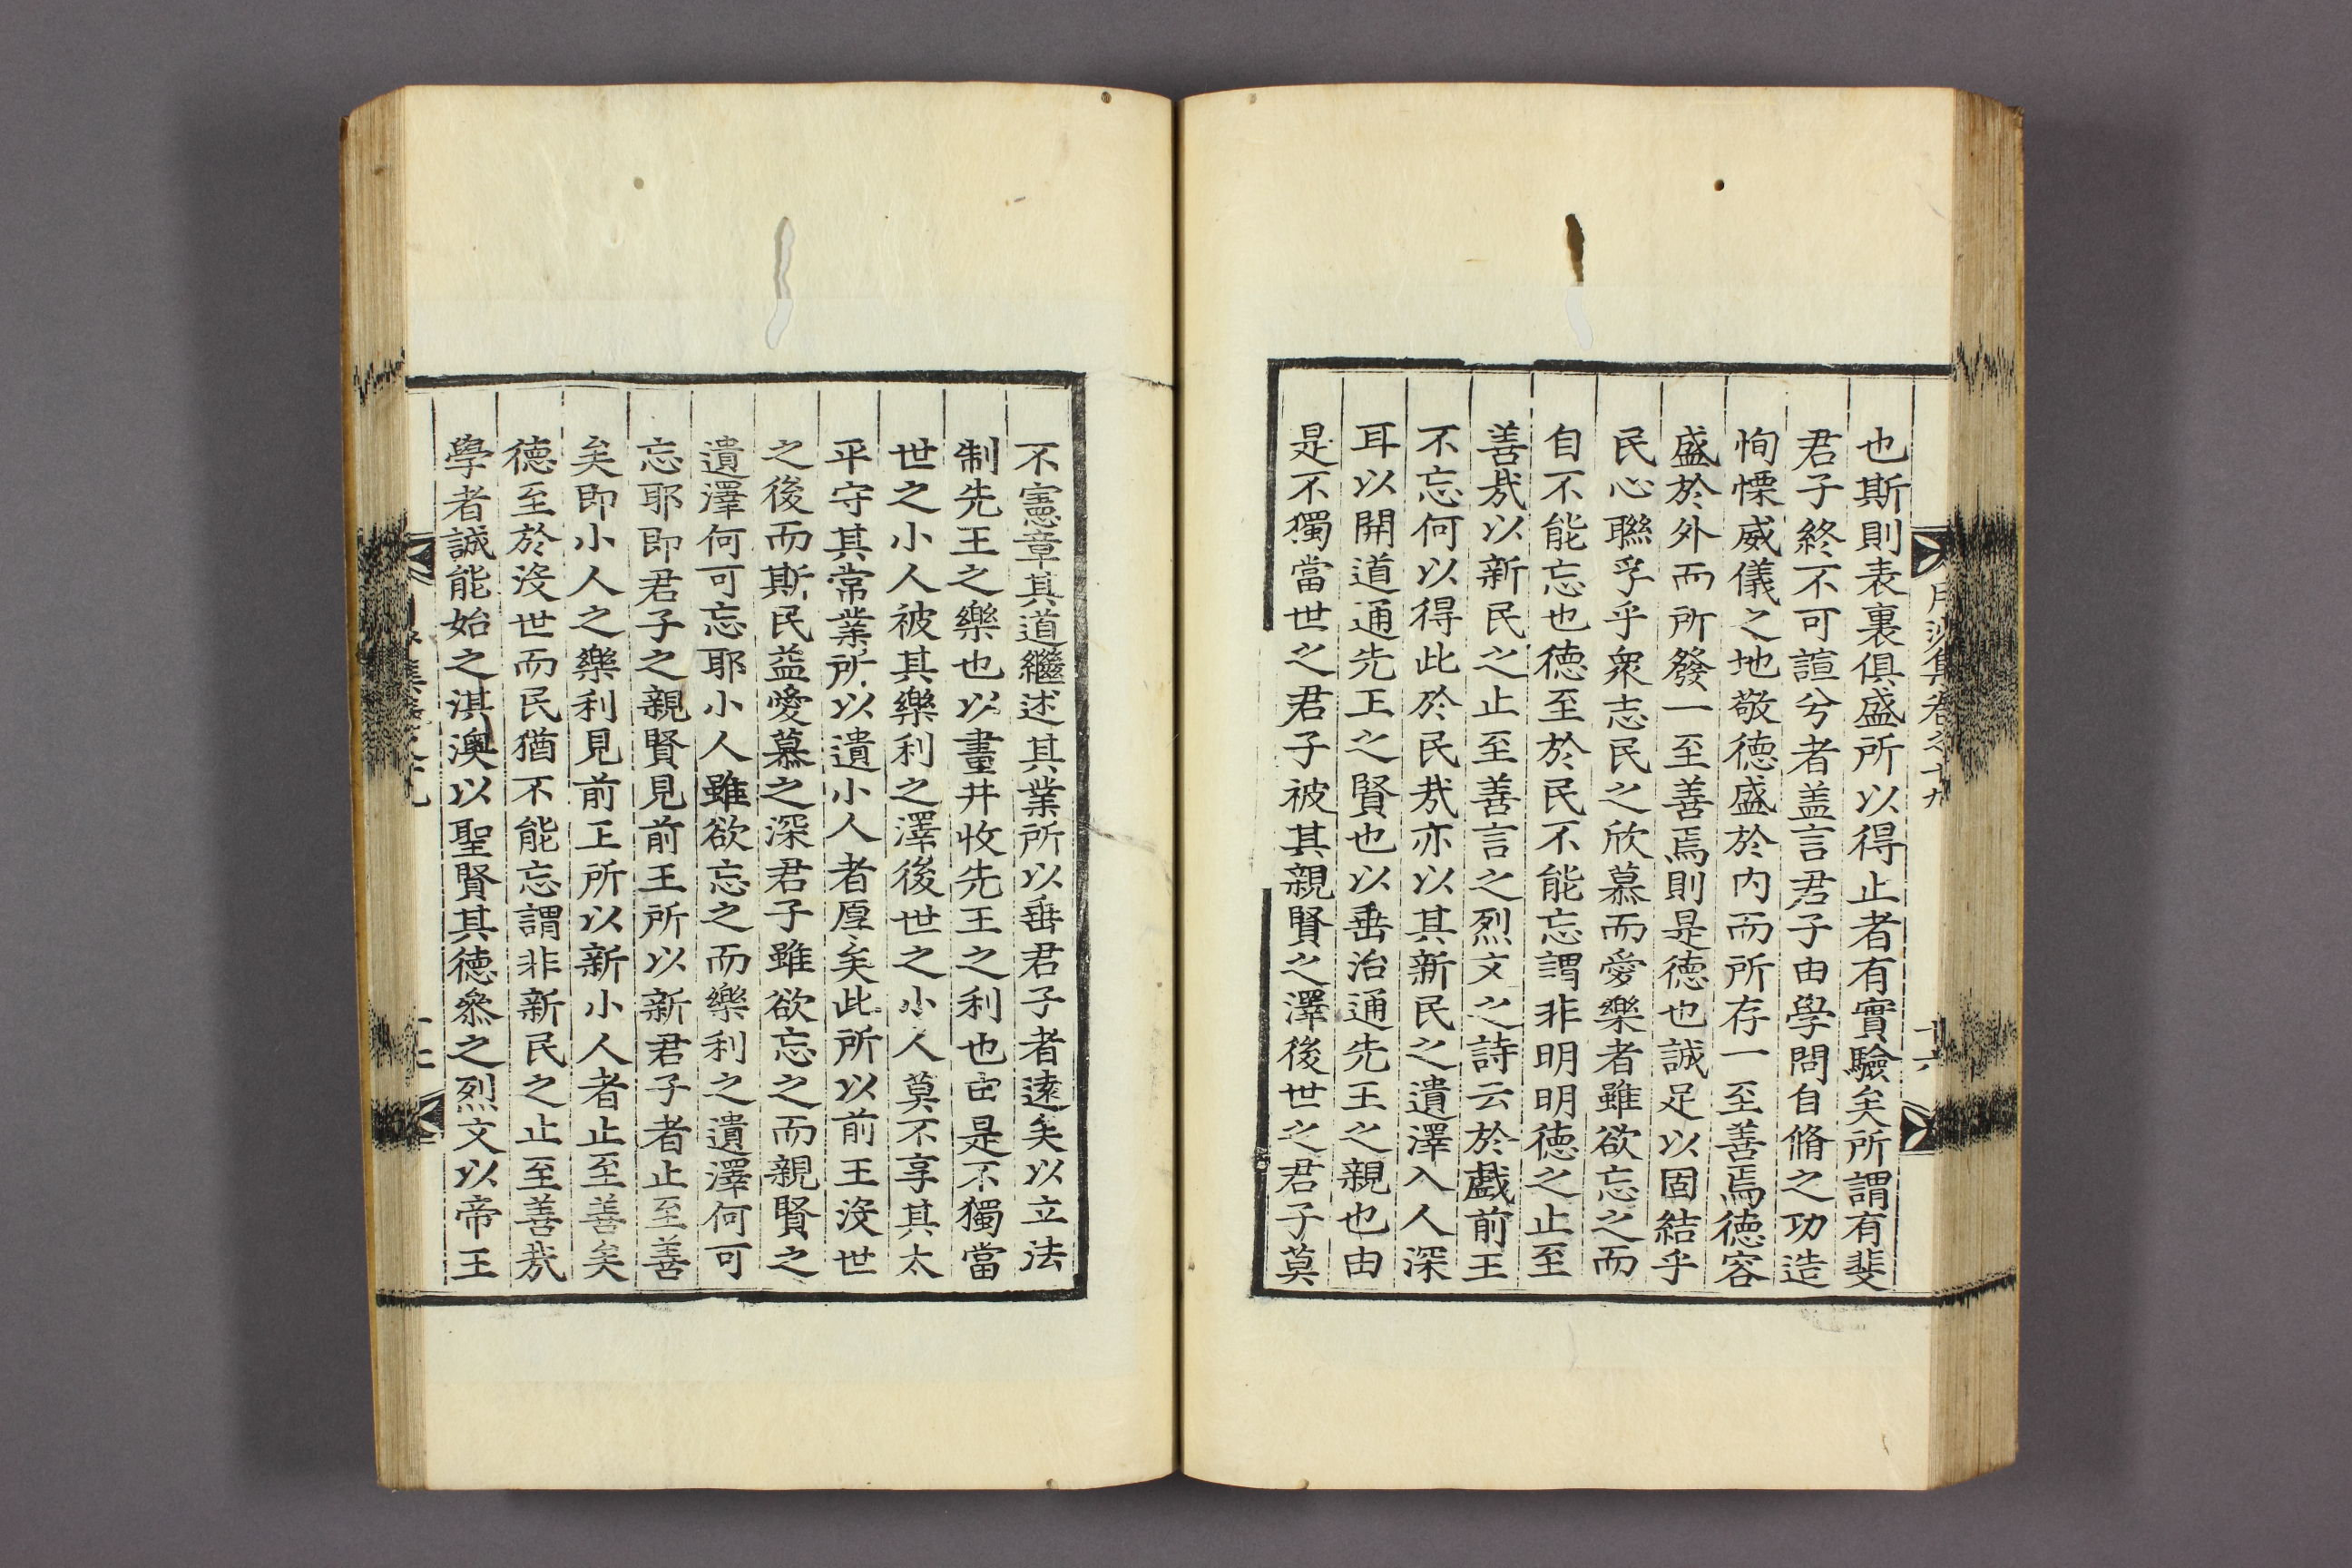 也斯則表裏俱盛所以得止者有實驗矣所謂有斐
君子終不可諠兮者盖言君子由學問自脩之功造
恂慄威儀之地敬德盛於內而所存一至善焉德容
盛於外而所發一至善焉則是德也誠足以固結乎
民心聯孚乎衆志民之欣慕而愛樂者雖欲忘之而
自不能忘也德至於民不能忘謂非明明德之止至
善㢤以新民之止至善言之烈文之詩云於戱前王
不忘何以得此於民㢤亦以其新民之遺澤入人深
耳以開道通先王之賢也以垂治通先王之親也由
是不獨當世之君子被其親賢之澤後世之君子莫
不憲章其道繼述其業所以垂君子者遠矣以立法
制先王之樂也以畫井收先王之利也由是不獨當
世之小人被其樂利之澤後世之小人莫不享其太
平守其常業所以遺小人者厚矣此所以前王沒世
之後而斯民益愛慕之深君子雖欲忘之而親賢之
遺澤何可忘耶小人雖欲忘之而樂利之遺澤何可
忘耶即君子之親賢見前王所以新君子者止至善
矣即小人之樂利見前王所以新小人者止至善矣
德至於沒世而民猶不能忘謂非新民之止至善㢤
學者誠能始之淇澳以聖賢其德叅之烈文以帝王
集卷之十九
十六